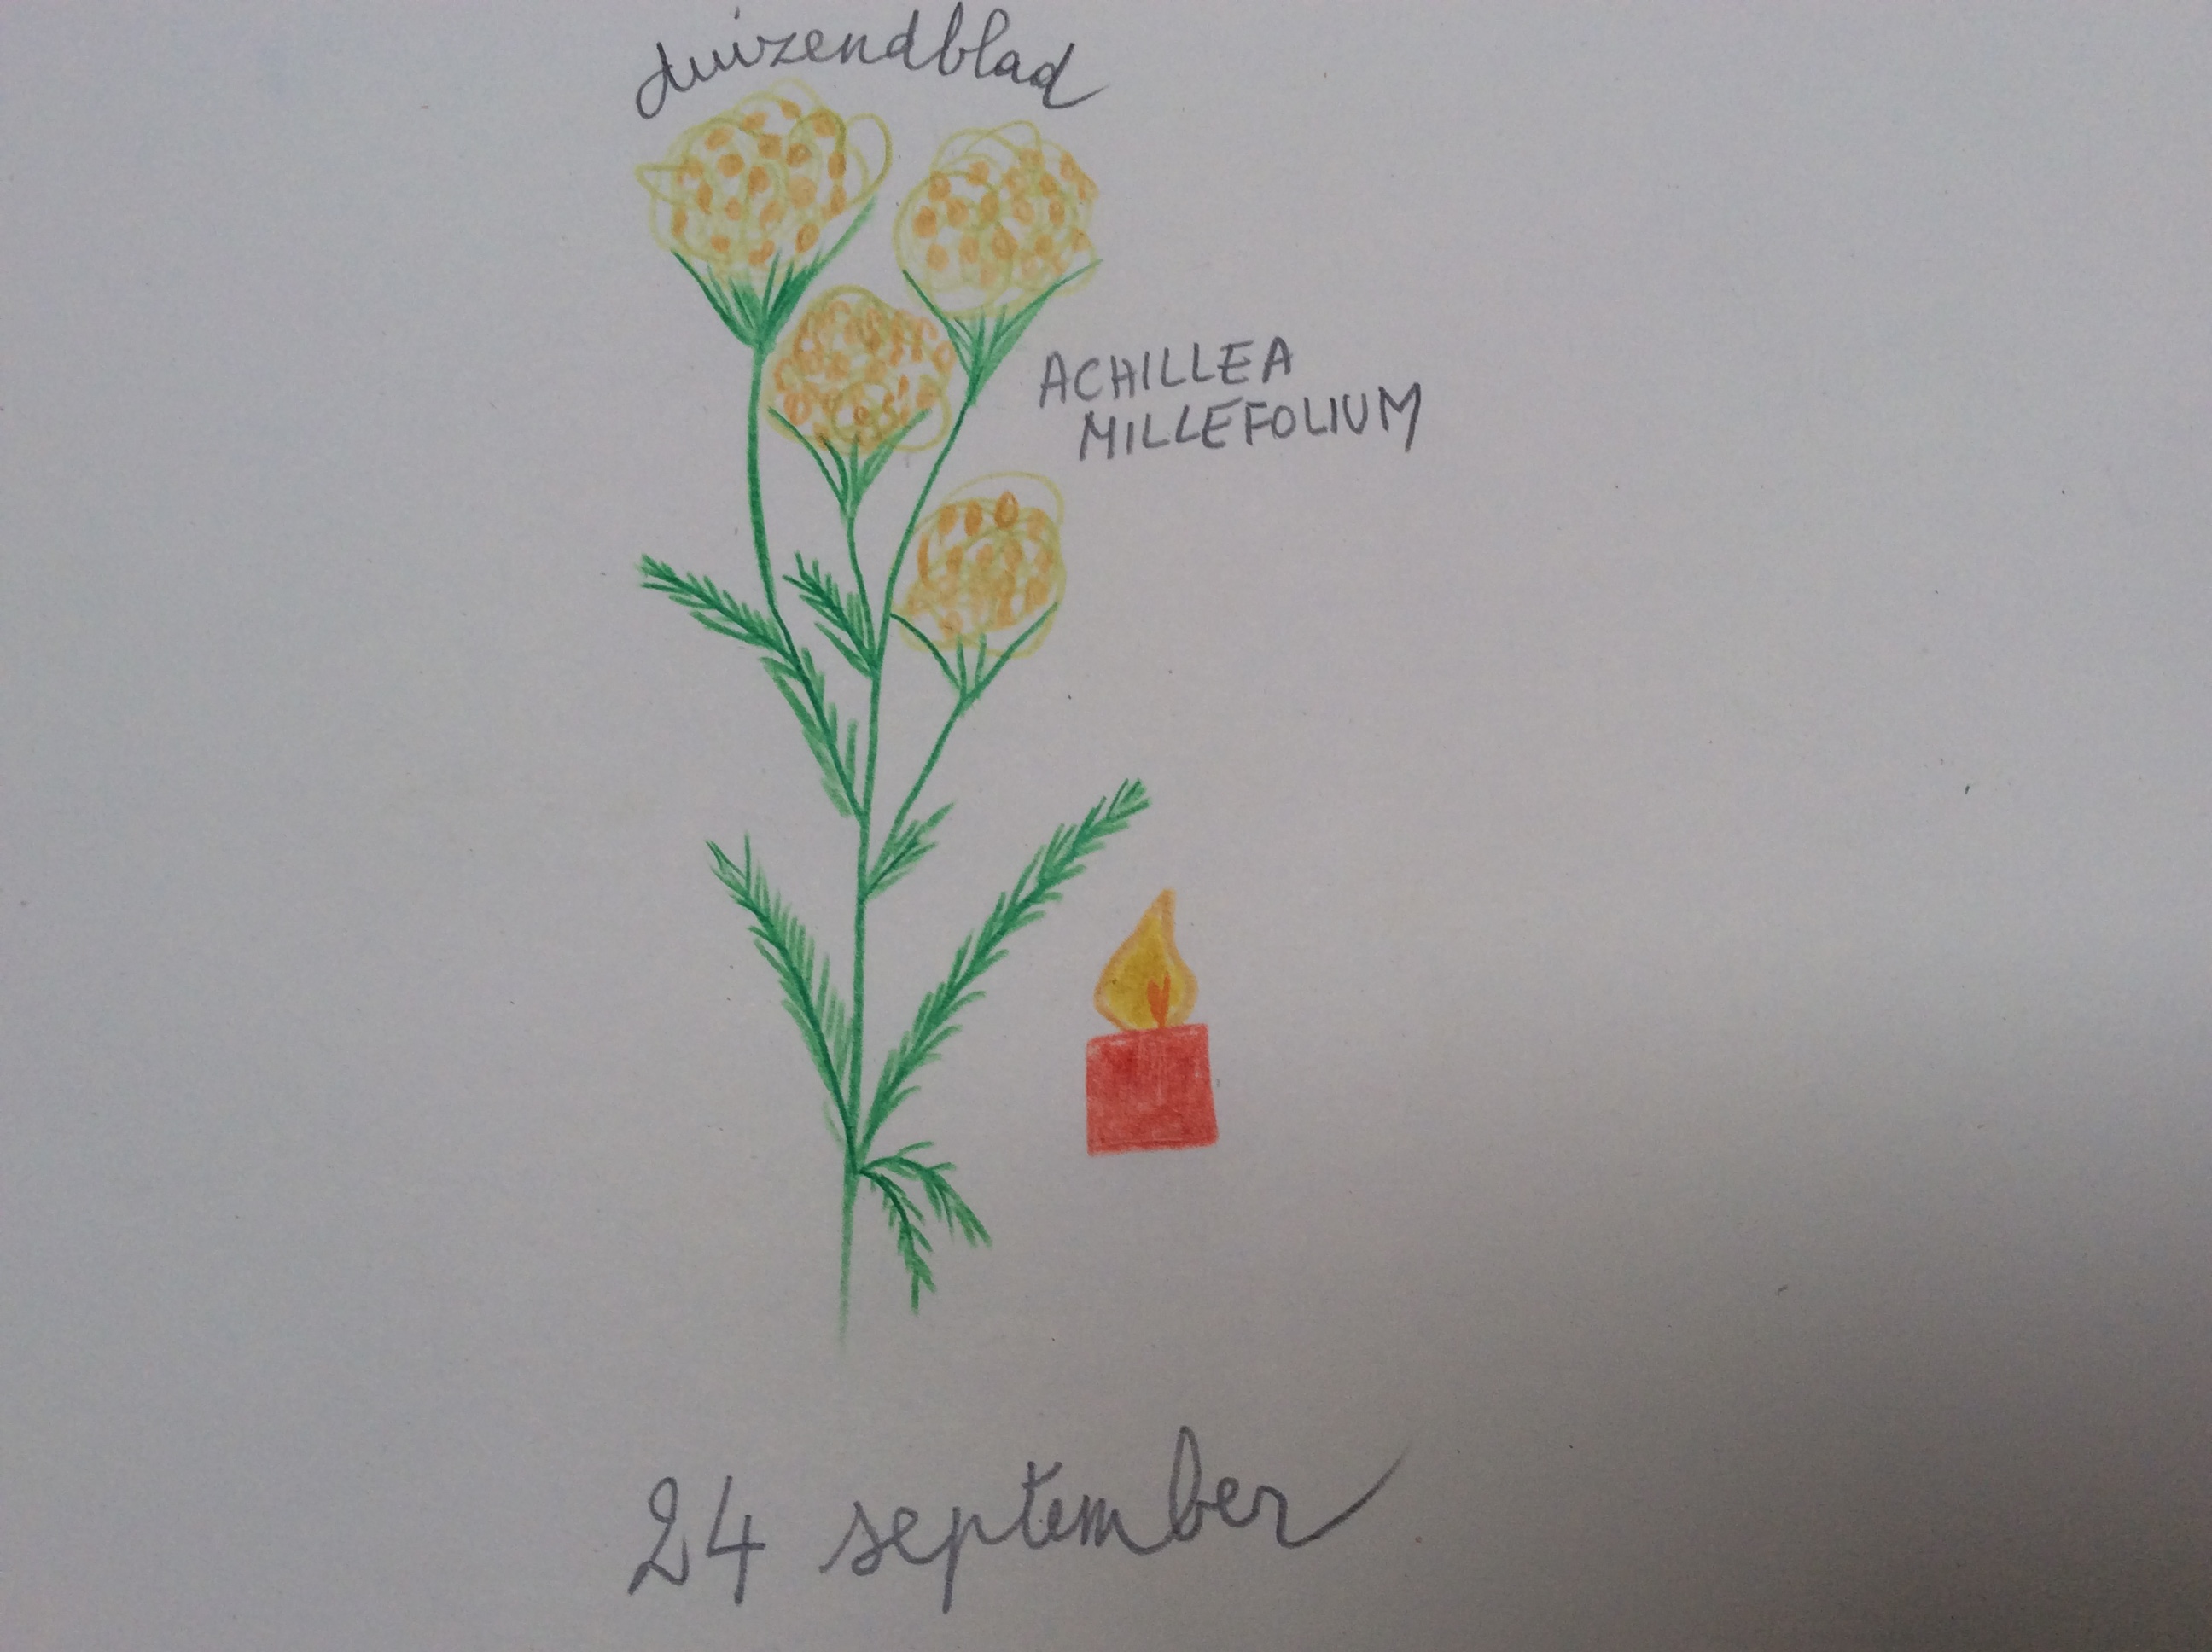 duizendblad
ACHILLEA
MILLEFOLIUM
24 september